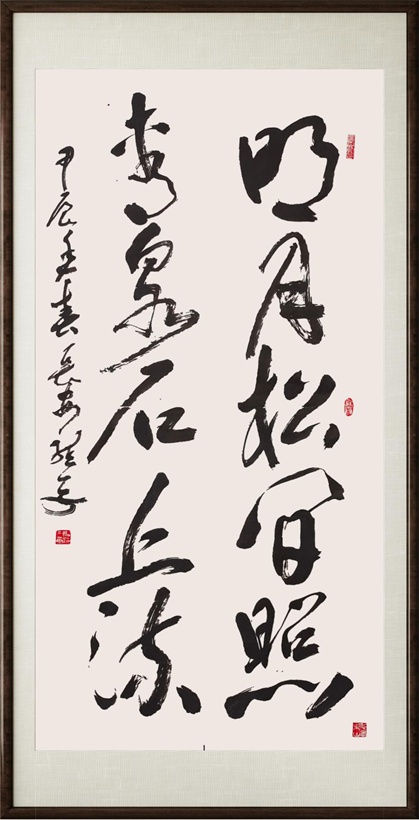 明月松间照
清泉石上流
甲辰年春長安